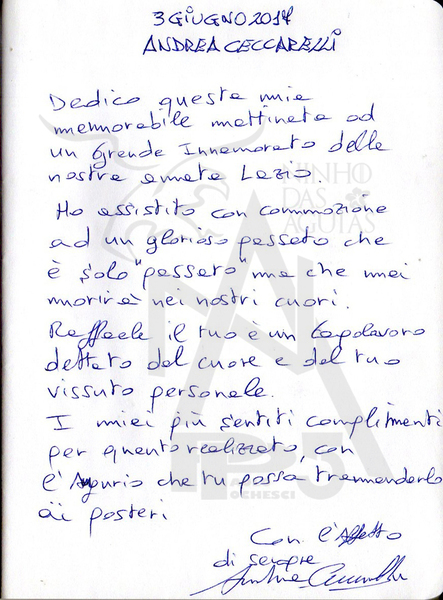 3 GIUGNO 2014
ANDREA CECCARELLI
Dedico questa mia
memorabile mattinata ad
un Grande Innamorato della
nostra amata Lazio.
Ho assistito con commozione
ad un glorioso passato che
è solo "passato" ma che mai
morirà nei nostri cuori.
Raffaele il tuo è un Capolavoro
dettato dal cuore e dal tuo
vissuto personale.
I miei più sentiti complimenti
per quanto realizzato, con
l'Augurio che tu possa tramandarlo
ai posteri
Con l'Affetto
di sempre
NINHO
DAS
AGUIAS